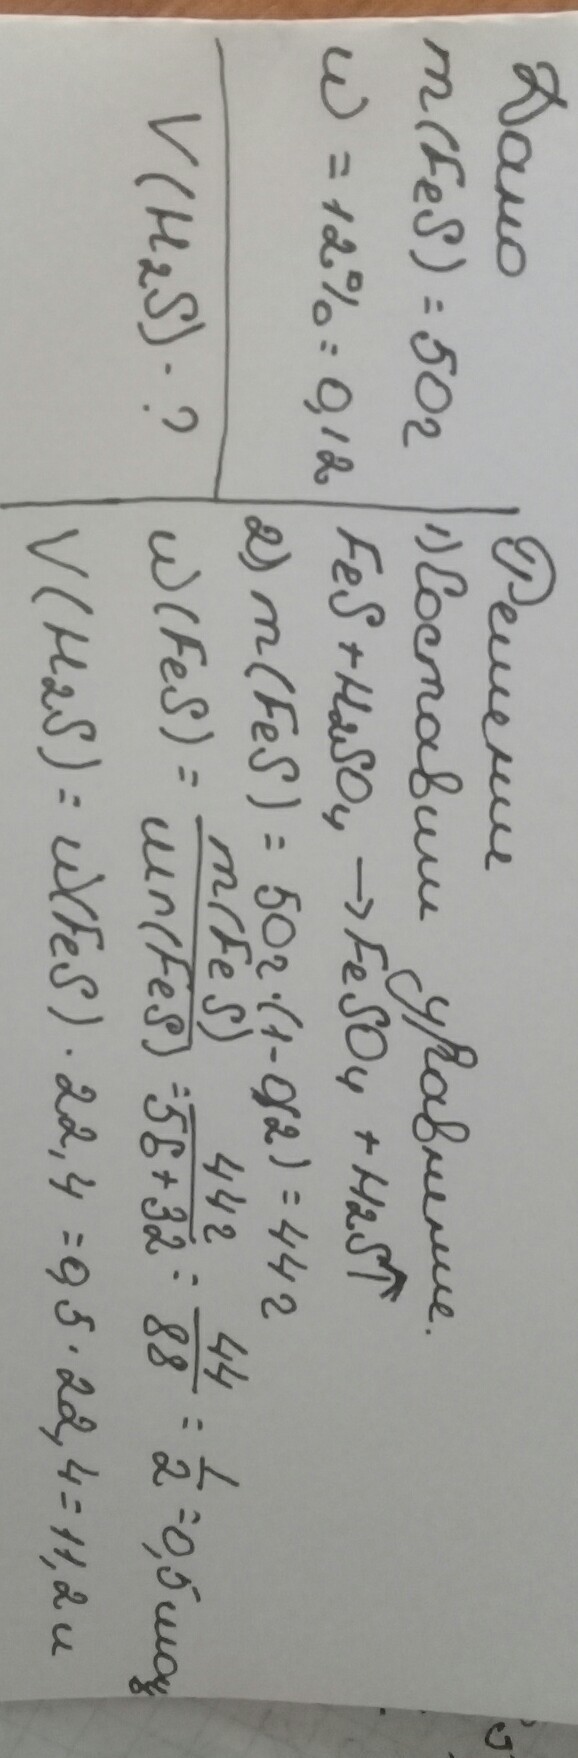 Дано
m(FeS) = 50г
w = 12% = 0,12
V(H2S) - ?
Решение
1) Составим уравнение.
FeS + H2SO4 → FeSO4 + H2S↑
2) m(FeS) = 50г·(1-0,12) = 44г
w(FeS) = m(FeS)/Mr(FeS) = 44г/56+32 = 44/88 = 1/2 = 0,5 моль
V(H2S) = w(FeS) · 22,4 = 0,5 · 22,4 = 11,2 л